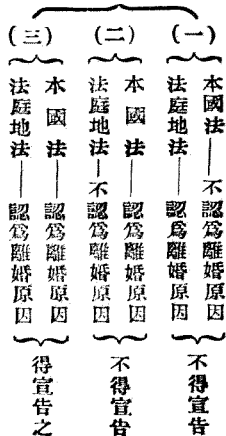 （一）
本國法——不認爲離婚原因
法庭地法——認爲離婚原因
不得宣告
（二）
本國法——認爲離婚原因
法庭地法——不認爲離婚原因
不得宣告
（三）
本國法——認爲離婚原因
法庭地法——認爲離婚原因
得宣告之